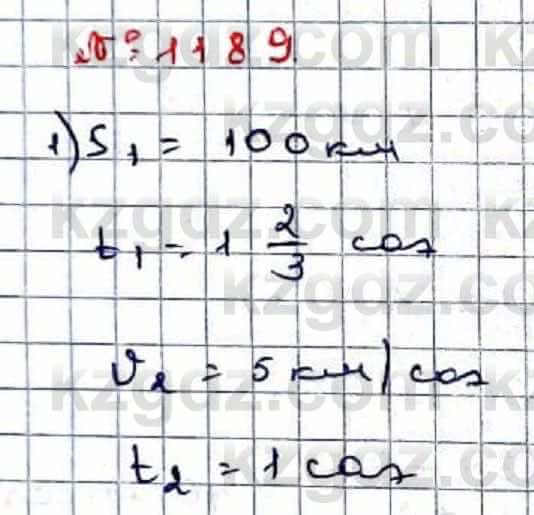 № 1189.
1) S₁ = 100 км
t₁ = 1 2/3 саг
v₂ = 5 км/саг
t₂ = 1 саг
kzgdz.com